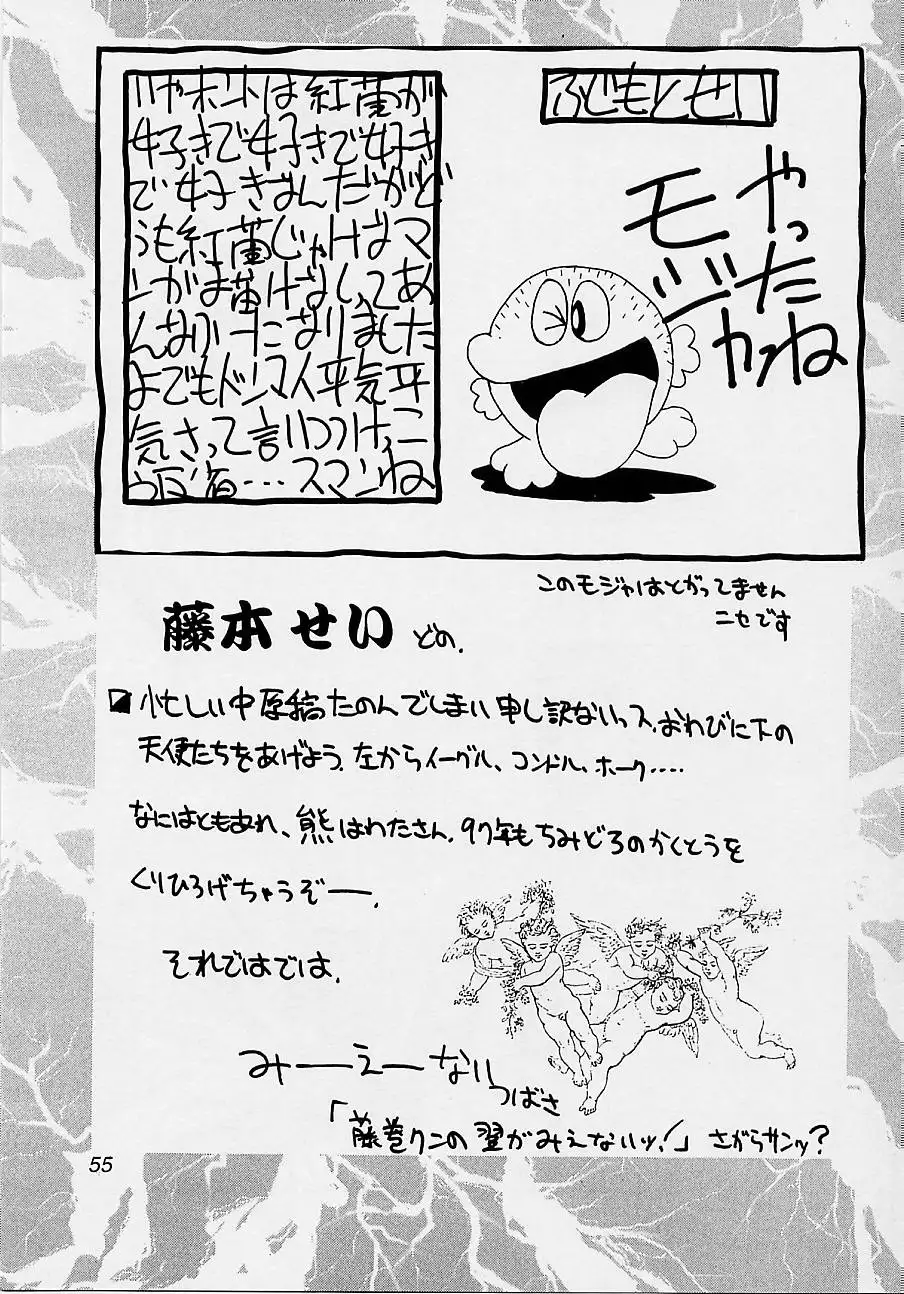 ふじもとせい
やった
ね
モジャ
いやホントは紅蘭が
好きで好きで好き
で好きなんだがど
うも紅蘭じゃげばマ
ンがお蔵げなしってあ
んなかーたになりました
よでもドンマイ平気平
気さって言いつつけっこ
う反省…スマンね
このモジャはとがってません
ニセです
藤本せい どの.
忙しい中原稿たのんでしまい申し訳ないっス.おわびに下の
天使たちをあげよう.左からイーグル、コンドル、ホーク‥‥
なにはともあれ、熊はわたさん.97年もちみどろのかくとうを
くりひろげちゃうぞー.
それではでは.
みーえーない
つばさ
「藤巻クンの翼がみえないッ!」さがらサンッ?
55